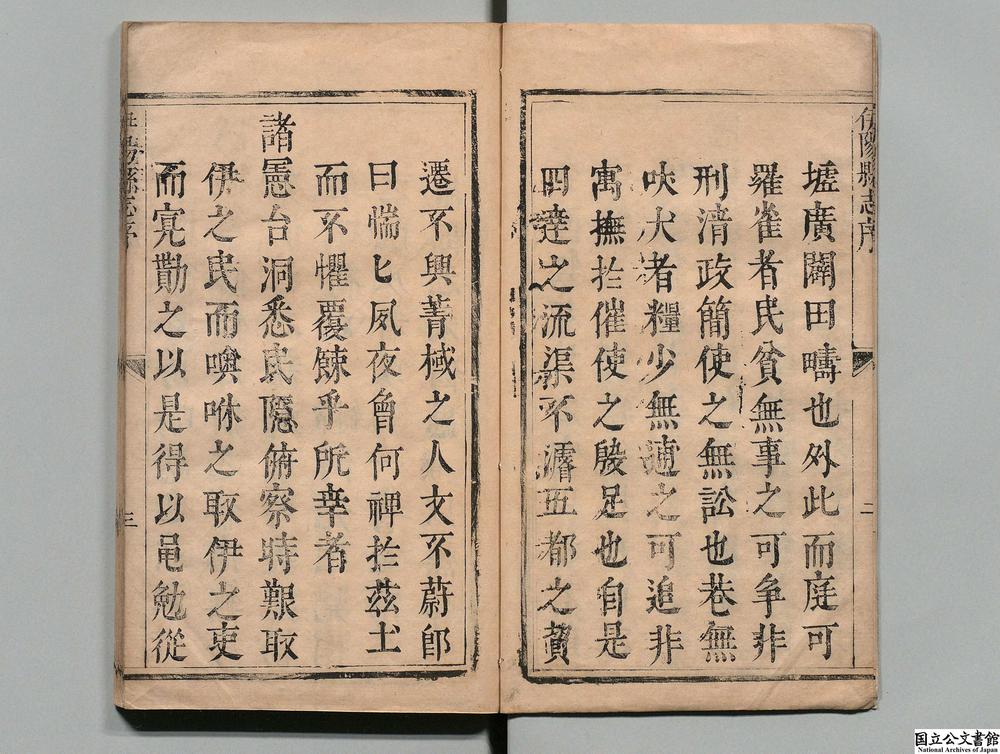 伊陽縣志序
二
墟廣闢田疇也外此而庭可
羅雀者民貧無事之可争非
刑清政簡使之無訟也巷無
吠犬者糧少無逋之可追非
寓撫扵催使之殷足也自是
四達之流渠不濬五都之貿
遷不興菁棫之人文不蔚卽
曰惴匕夙夜曾何裨扵茲土
而不懼覆餗乎所幸者
諸憲台洞悉民隠俯察時艱取
伊之民而噢咻之取伊之吏
而寛勸之以是得以黽勉從
陽縣志序
三
国立公文書館
National Archives of Japan